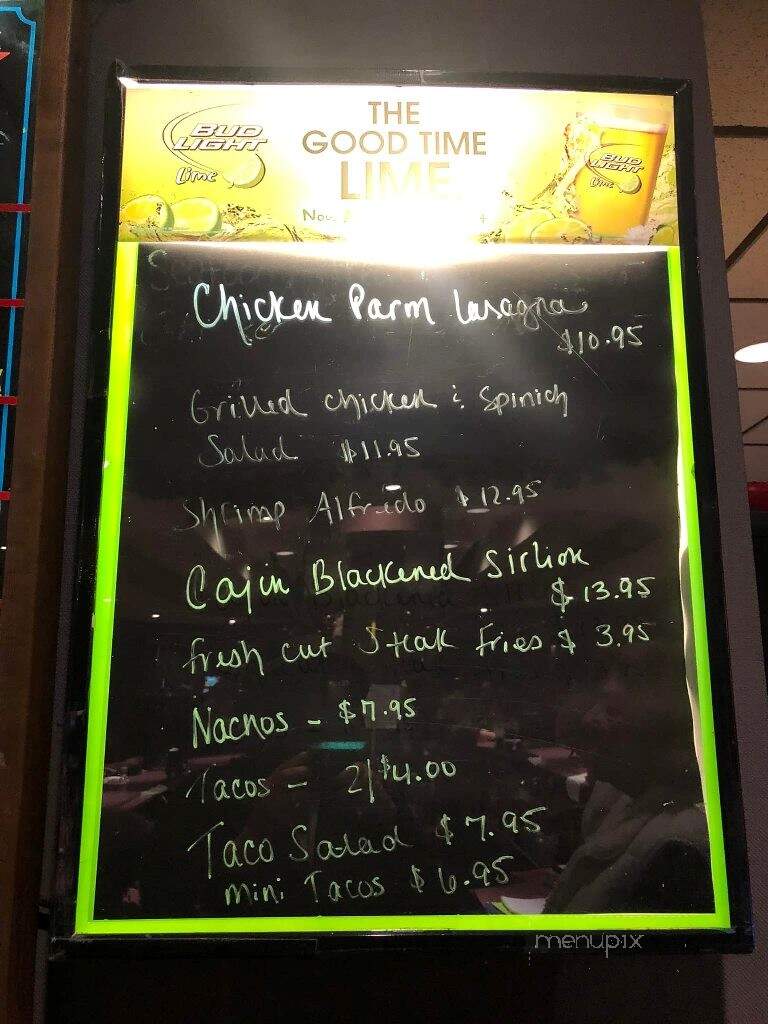 BUD LIGHT Lime
THE
GOOD TIME
LIME
BUD LIGHT Lime
Chicken Parm Lasagna
$10.95
Grilled chicken & Spinich
Salad $11.95
Shrimp Alfredo $12.95
Cajin Blackened Sirlion
$13.95
fresh cut Steak Fries $3.95
Nachos - $7.95
Tacos - 2/$4.00
Taco Salad $7.95
mini Tacos $6.95
menupix